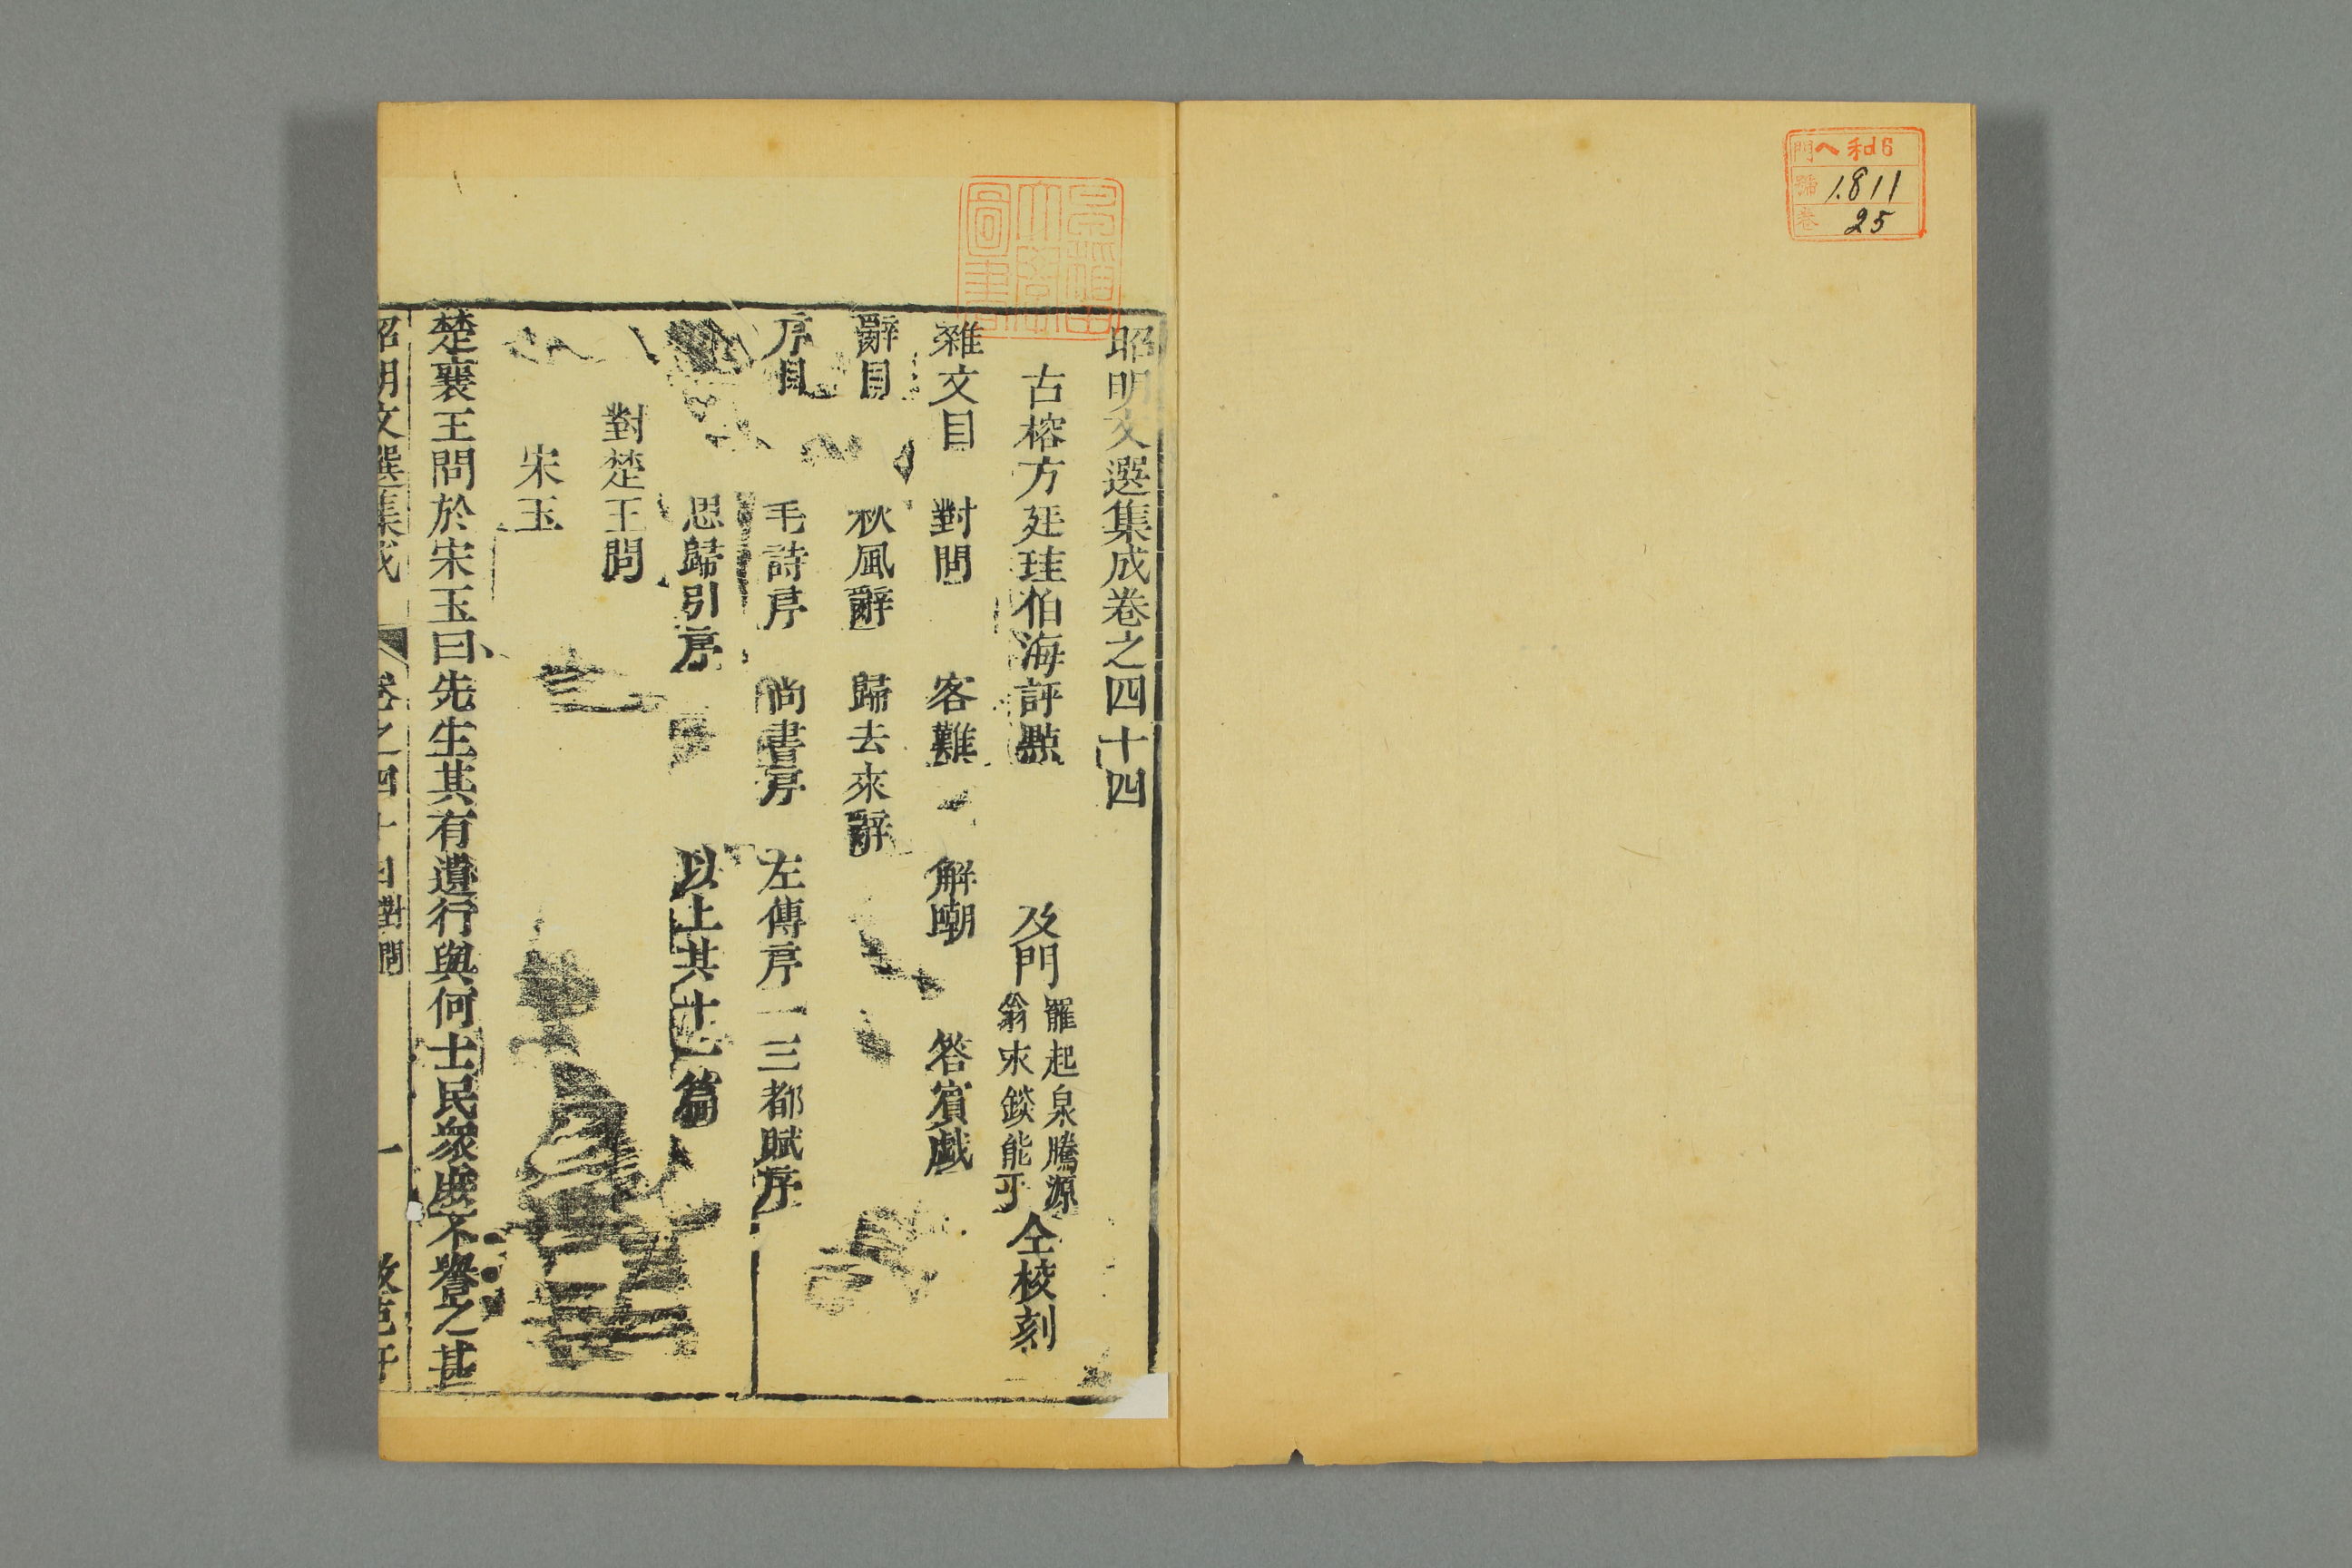 門 ヘ和6
號 1.811
卷 25
早稲田大學圖書
昭明文選集成卷之四十四
古榕方廷珪伯海評點 及門
羅起泉騰源
翁求錟能孚
仝校刻
雜文目 對問 客難 解嘲 答賓戲
辭目 秋風辭 歸去來辭
序目 毛詩序 尚書序 左傳序 三都賦序
思歸引序 以上共十一篇
對楚王問
宋玉
楚襄王問於宋玉曰先生其有遺行與何士民衆庶不譽之甚
昭明文選集成 卷之四十四 對問 一 倣范軒